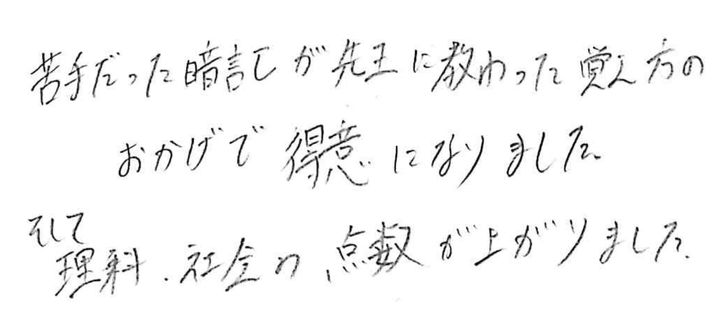 苦手だった暗記が先生に教わった覚え方の
おかげで得意になりました。
そして
理科、社会の点数が上がりました。